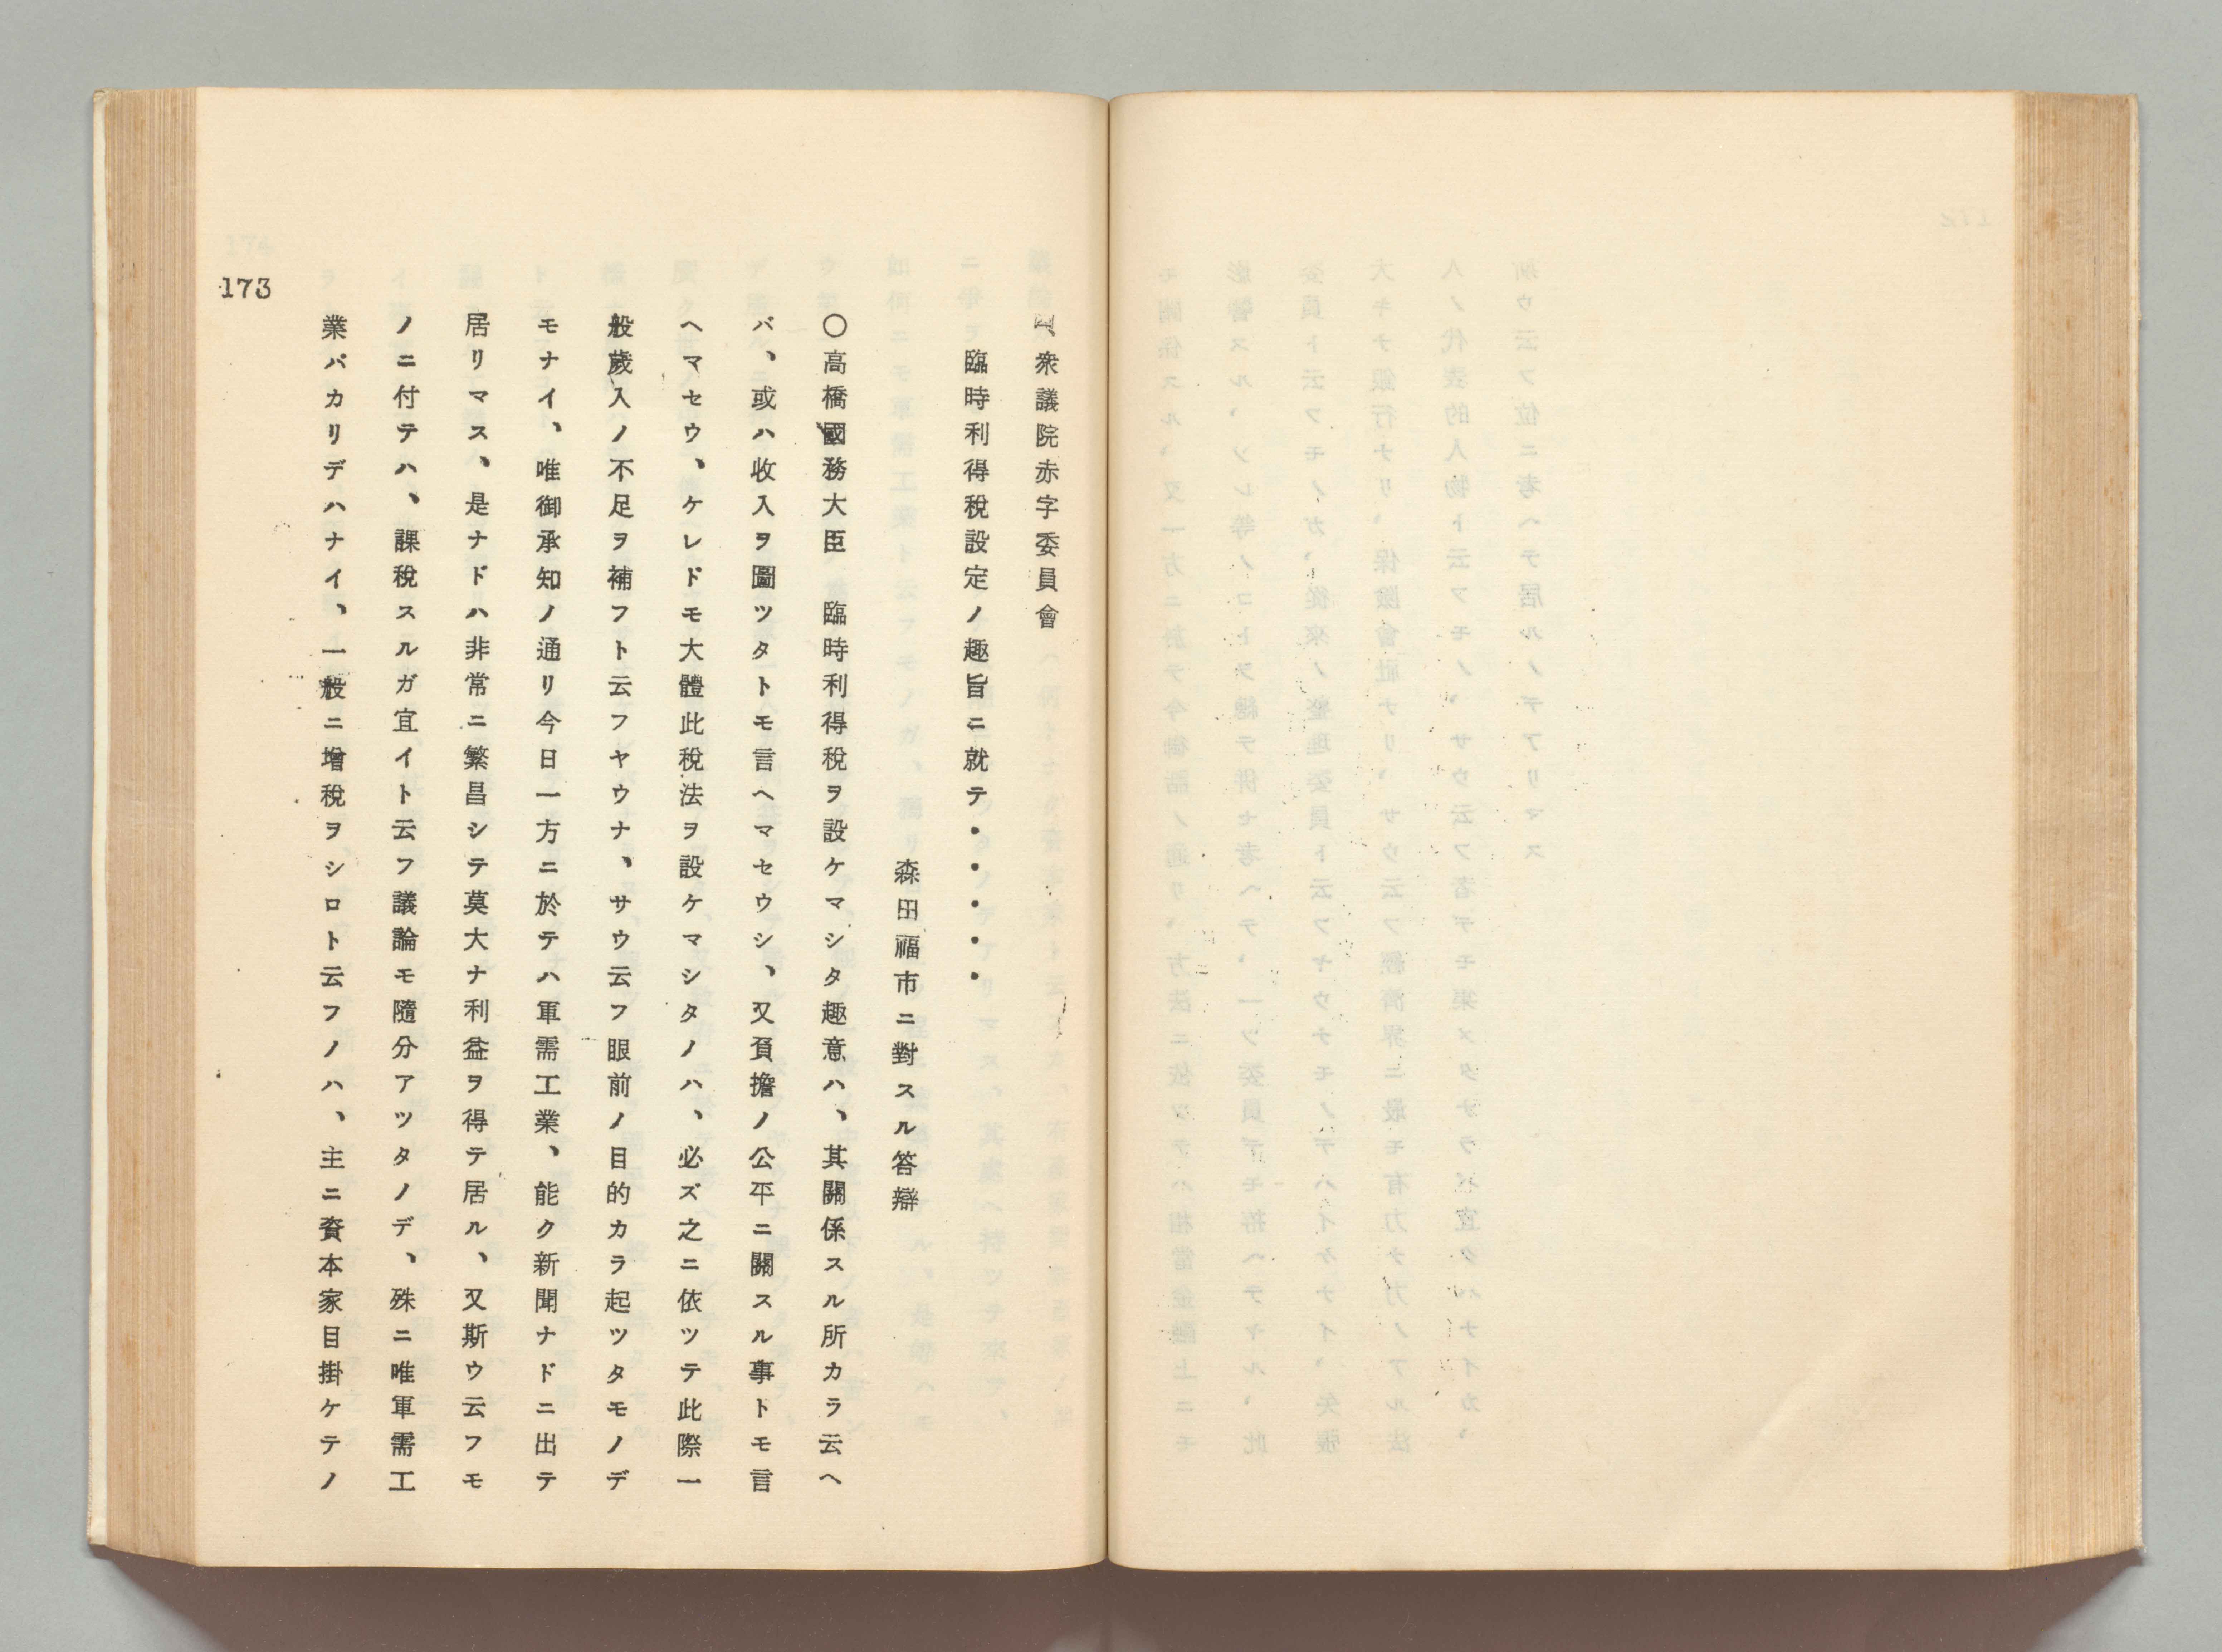 、衆議院赤字委員會
臨時利得稅設定ノ趣旨ニ就テ・・・・・
森田福市ニ對スル答辯
○高橋國務大臣　臨時利得稅ヲ設ケマシタ趣意ハ、其關係スル所カラ云ヘ
バ、或ハ收入ヲ圖ツタトモ言ヘマセウシ、又負擔ノ公平ニ關スル事トモ言
ヘマセウ、ケレドモ大體此稅法ヲ設ケマシタノハ、必ズ之ニ依ツテ此際一
般歲入ノ不足ヲ補フト云フヤウナ、サウ云フ眼前ノ目的カラ起ツタモノデ
モナイ、唯御承知ノ通リ今日一方ニ於テハ軍需工業、能ク新聞ナドニ出テ
居リマス、是ナドハ非常ニ繁昌シテ莫大ナ利益ヲ得テ居ル、又斯ウ云フモ
ノニ付テハ、課稅スルガ宜イト云フ議論モ隨分アツタノデ、殊ニ唯軍需工
業バカリデハナイ、一般ニ增稅ヲシロト云フノハ、主ニ資本家目掛ケテノ
173